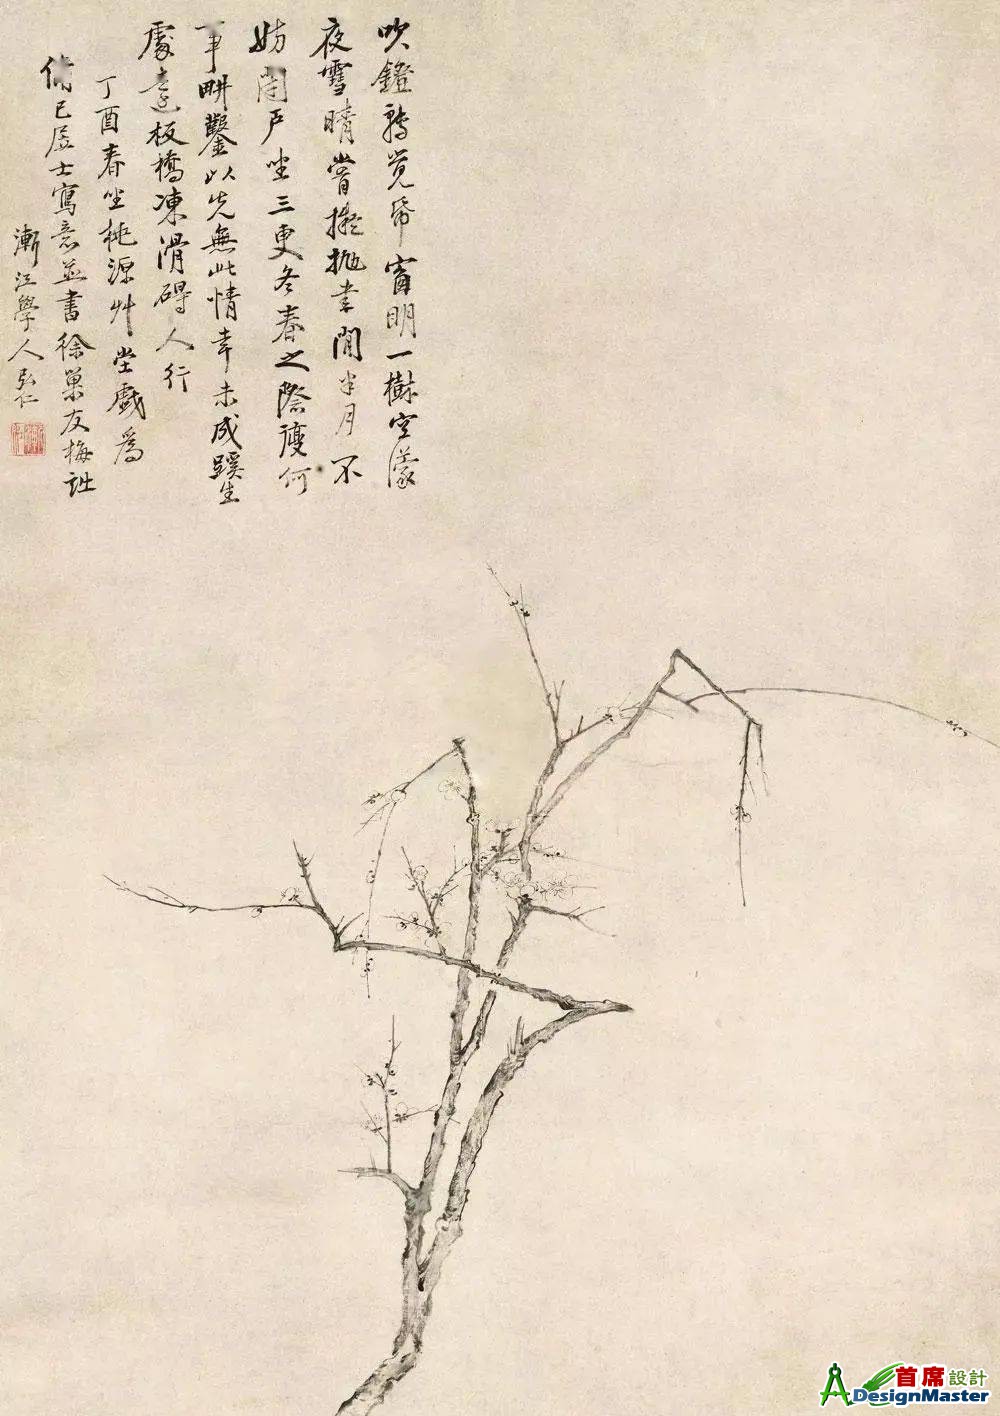 吹鐙轉覺幕窗明一樹空濛
夜雪晴嘗擬拋書閒半月不
妨閉戶坐三更冬春之際復何
事耕鑿以先無此情幸未成蹊生
處遠板橋凍滑碍人行
丁酉春坐桃源艸堂戲為
脩已居士寫意並書徐巢友梅詩
漸江學人弘仁
首席設計
DesignMaster